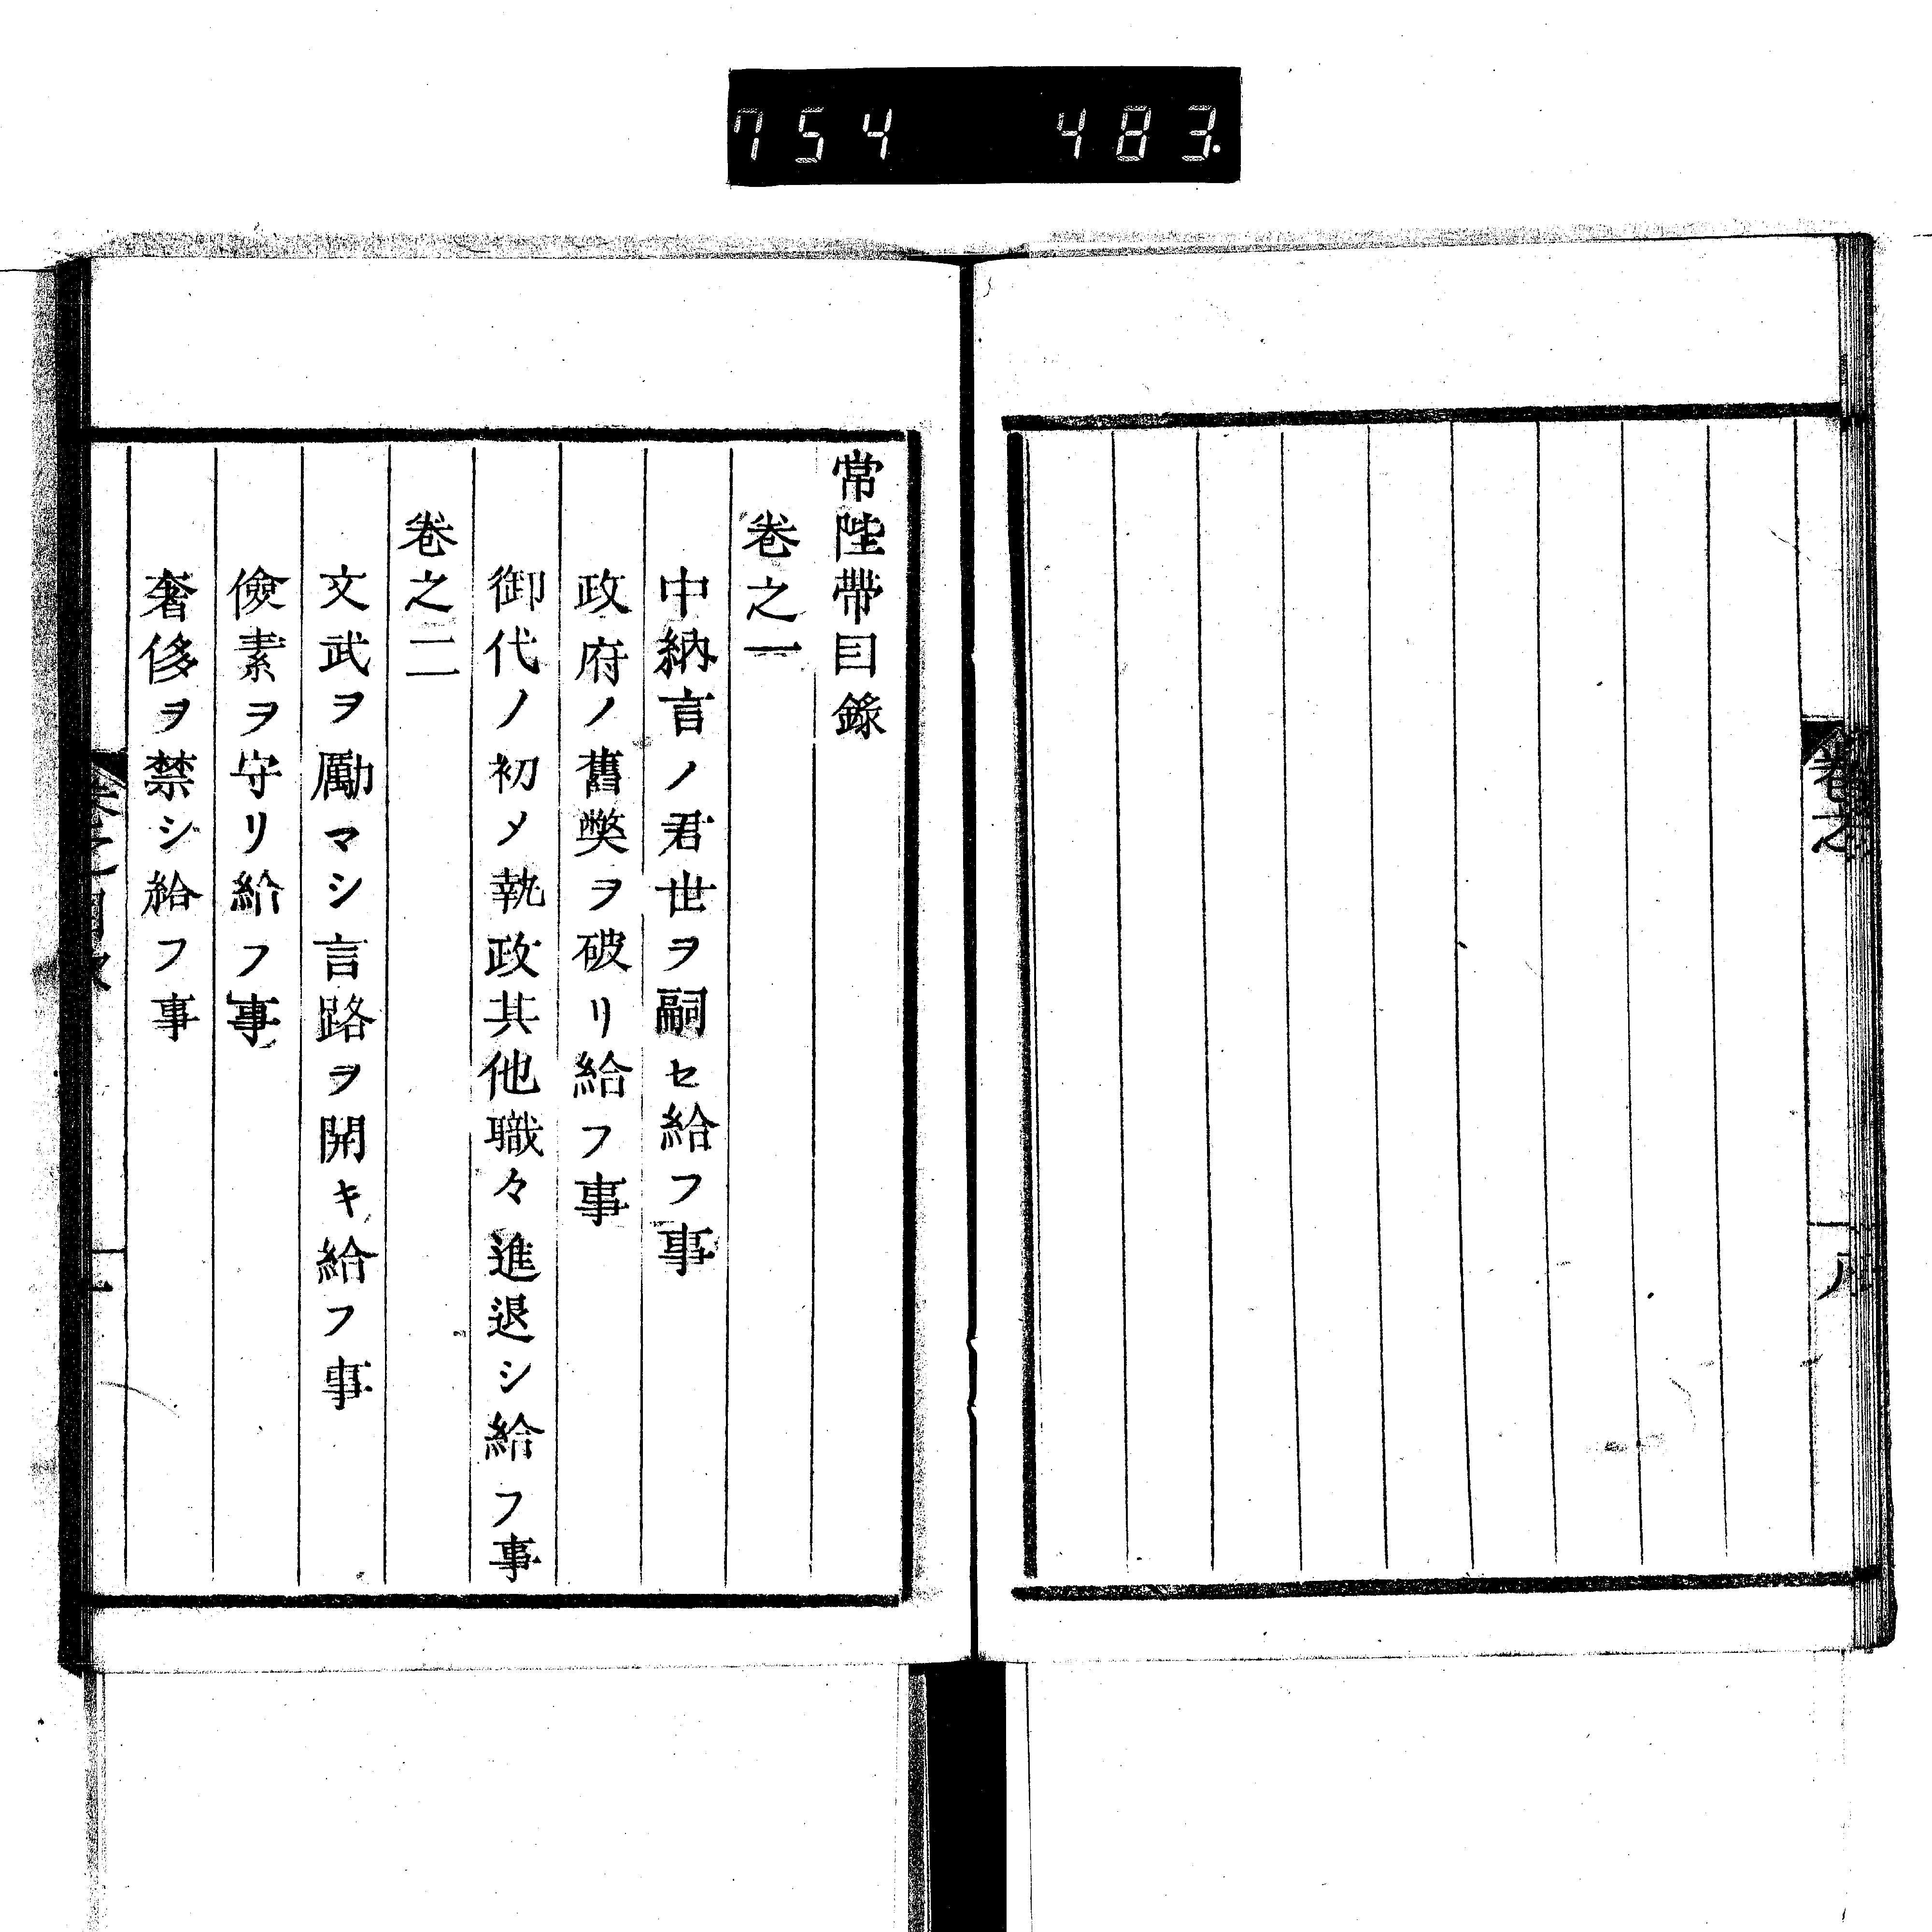 754 483.
卷之
常陸帶目錄
卷之一
中納言ノ君世ヲ嗣セ給フ事
政府ノ舊獘ヲ破リ給フ事
御代ノ初メ執政其他職々進退シ給フ事
卷之二
文武ヲ勵マシ言路ヲ開キ給フ事
儉素ヲ守リ給フ事
奢侈ヲ禁シ給フ事